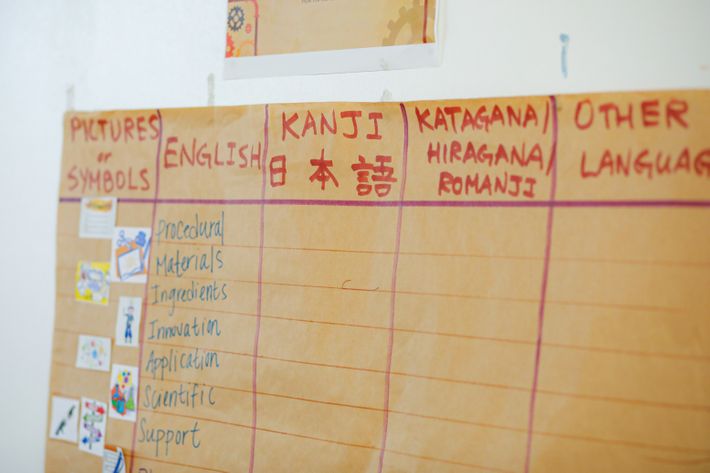 PICTURES
or
SYMBOLS
ENGLISH
KANJI
日本語
KATAGANA/
HIRAGANA/
ROMANJI
OTHER
LANGUAG
Procedural
Materials
Ingredients
Innovation
Application
Scientific
Support